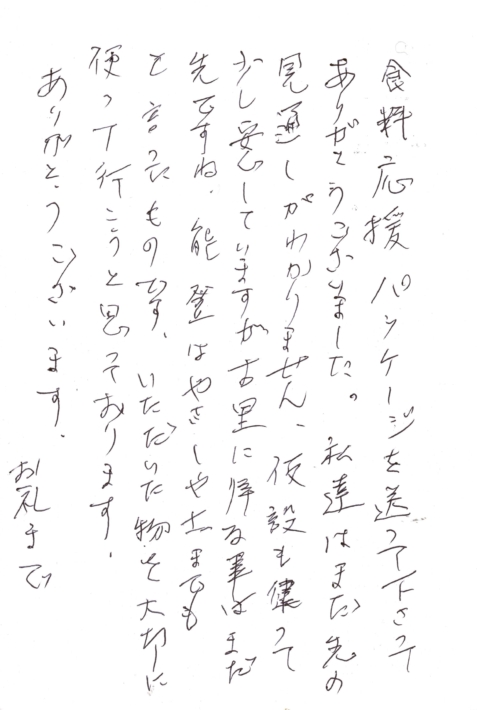 食料応援パッケージを送って下さって
ありがとうございました。私達はまだ先の
見通しがわかりません、仮設も儀って
少し安心していますが古里に帰る事はまだ
先ですね、能登はやさしや土までも
と言ったものです、いただいた物を大切に
使って行こうと思っております、
ありがとうございます、
お礼まで